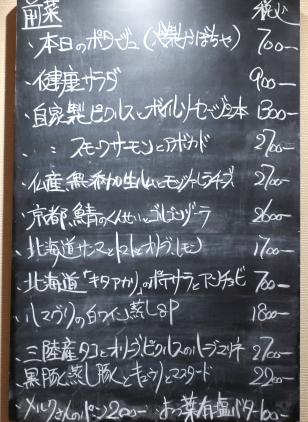 前菜 税込
・本日のポタージュ(かぼちゃ) 700-
・健康サラダ 900-
・自家製ピクルスとボイルソーセージ2本 1300-
・〃スモークサーモンとアボカド 2700-
・仏産無添加生ハムとモッツァレラチーズ 2700-
・京都鯖のくんせいとゴルゴンゾーラ 2600-
・北海道サンマとトマトとオリーブレモン 1700-
・北海道「キタアカリ」のポテサラとアンチョビ 700-
・ハマグリの白ワイン蒸し8P 1800-
・三陸産タコとオリーブピクルスのハーブマリネ 2700-
・黒豚と蒸し豚とキュウリとマスタード 2200-
・メルクさんのパン200- よつ葉有塩バター100-